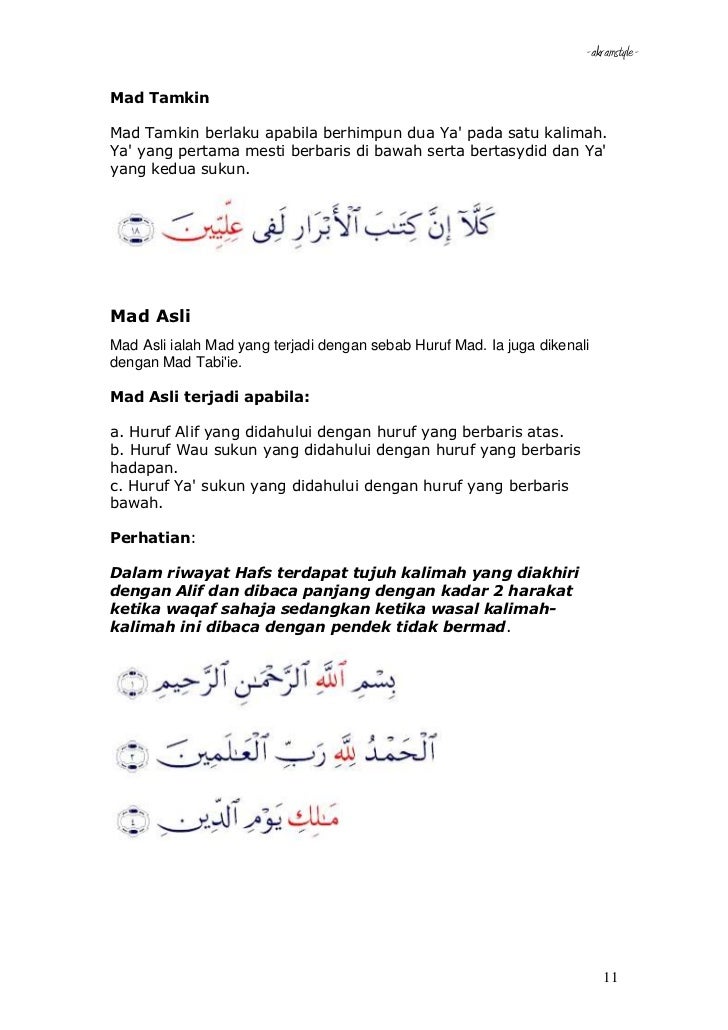 -akramstyle-
Mad Tamkin
Mad Tamkin berlaku apabila berhimpun dua Ya' pada satu kalimah.
Ya' yang pertama mesti berbaris di bawah serta bertasydid dan Ya'
yang kedua sukun.
كَلَّآ إِنَّ كِتَٰبَ ٱلْأَبْرَارِ لَفِى عِلِّيِّينَ ١٨
Mad Asli
Mad Asli ialah Mad yang terjadi dengan sebab Huruf Mad. Ia juga dikenali
dengan Mad Tabi'ie.
Mad Asli terjadi apabila:
a. Huruf Alif yang didahului dengan huruf yang berbaris atas.
b. Huruf Wau sukun yang didahului dengan huruf yang berbaris
hadapan.
c. Huruf Ya' sukun yang didahului dengan huruf yang berbaris
bawah.
Perhatian:
Dalam riwayat Hafs terdapat tujuh kalimah yang diakhiri
dengan Alif dan dibaca panjang dengan kadar 2 harakat
ketika waqaf sahaja sedangkan ketika wasal kalimah-
kalimah ini dibaca dengan pendek tidak bermad.
بِسْمِ ٱللَّهِ ٱلرَّحْمَٰنِ ٱلرَّحِيمِ ١
ٱلْحَمْدُ لِلَّهِ رَبِّ ٱلْعَٰلَمِينَ ٢
مَٰلِكِ يَوْمِ ٱلدِّينِ ٤
11